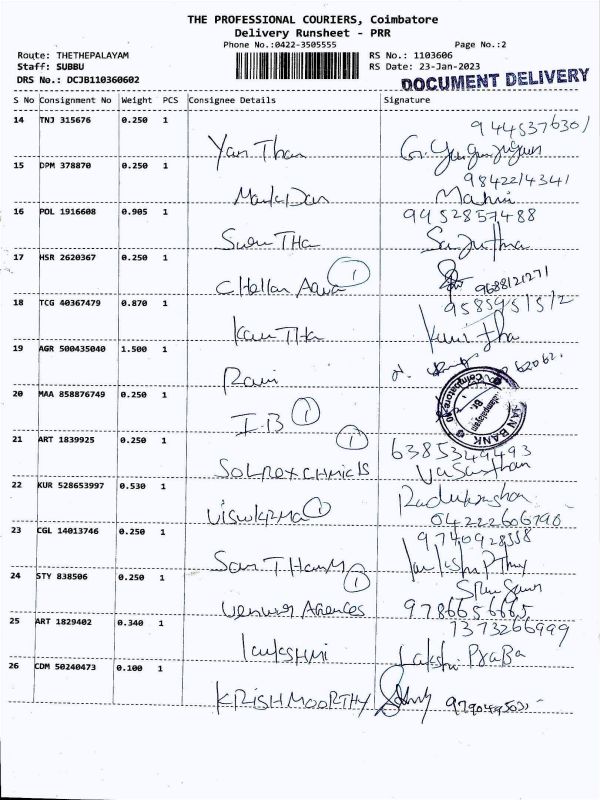 THE PROFESSIONAL COURIERS, Coimbatore
Delivery Runsheet - PRR
Phone No.:0422-3505555 Page No.:2
Route: THETHEPALAYAM RS No.: 1103606
Staff: SUBBU RS Date: 23-Jan-2023
DRS No.: DCJB110360602 DOCUMENT DELIVERY
S No Consignment No Weight PCS Consignee Details Signature
14 TNJ 315676 0.250 1
9445376301
Yan Than
15 DPM 378870 0.250 1
9842214341
16 POL 1916608 0.905 1 9952857488
Suan THa Sanjutha
17 HSR 2620367 0.250 1
Chellan 1 9688121271
18 TCG 40367479 0.870 1 9585951512
Kan THa
19 AGR 500435040 1.500 1
Ravi
20 MAA 858876749 0.250 1
IB 1
21 ART 1839925 0.250 1 1 6385349493
Vasanthan
22 KUR 528653997 0.530 1
1 04222606790
23 CGL 14013746 0.250 1 9740928558
24 STY 838506 0.250 1 1
Agences 9786656665
25 ART 1829402 0.340 1 7373266999
Laukshmi Lakshmi PraBa
26 CDM 50240473 0.100 1
KRISHMOORTHY